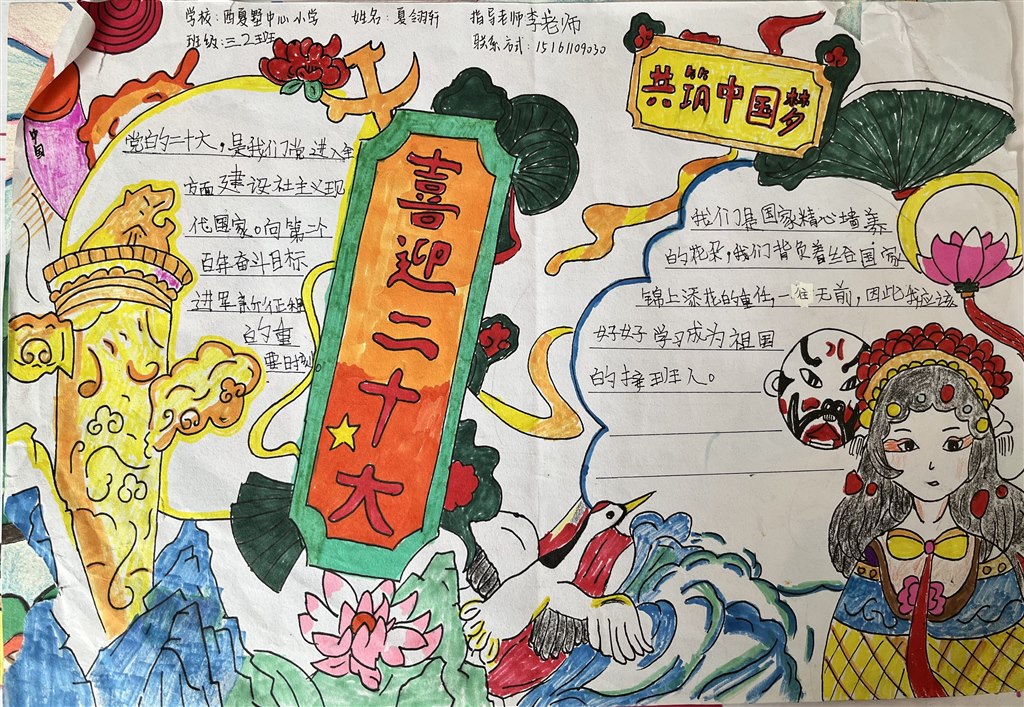 学校：西夏墅中心小学 姓名：夏翎轩 指导老师李老师
班级：三2班 联系方式：15161109030
中国
党的二十大，是我们党进入全
方面建设社主义现
代国家。向第二个
百年奋斗目标
进军新的征程
的重
要时刻。
喜迎二十大
共筑中国梦
我们是国家精心培养
的花朵，我们背负着给国家
锦上添花的重任，一往无前，因此我应该
好好学习成为祖国
的接班人。